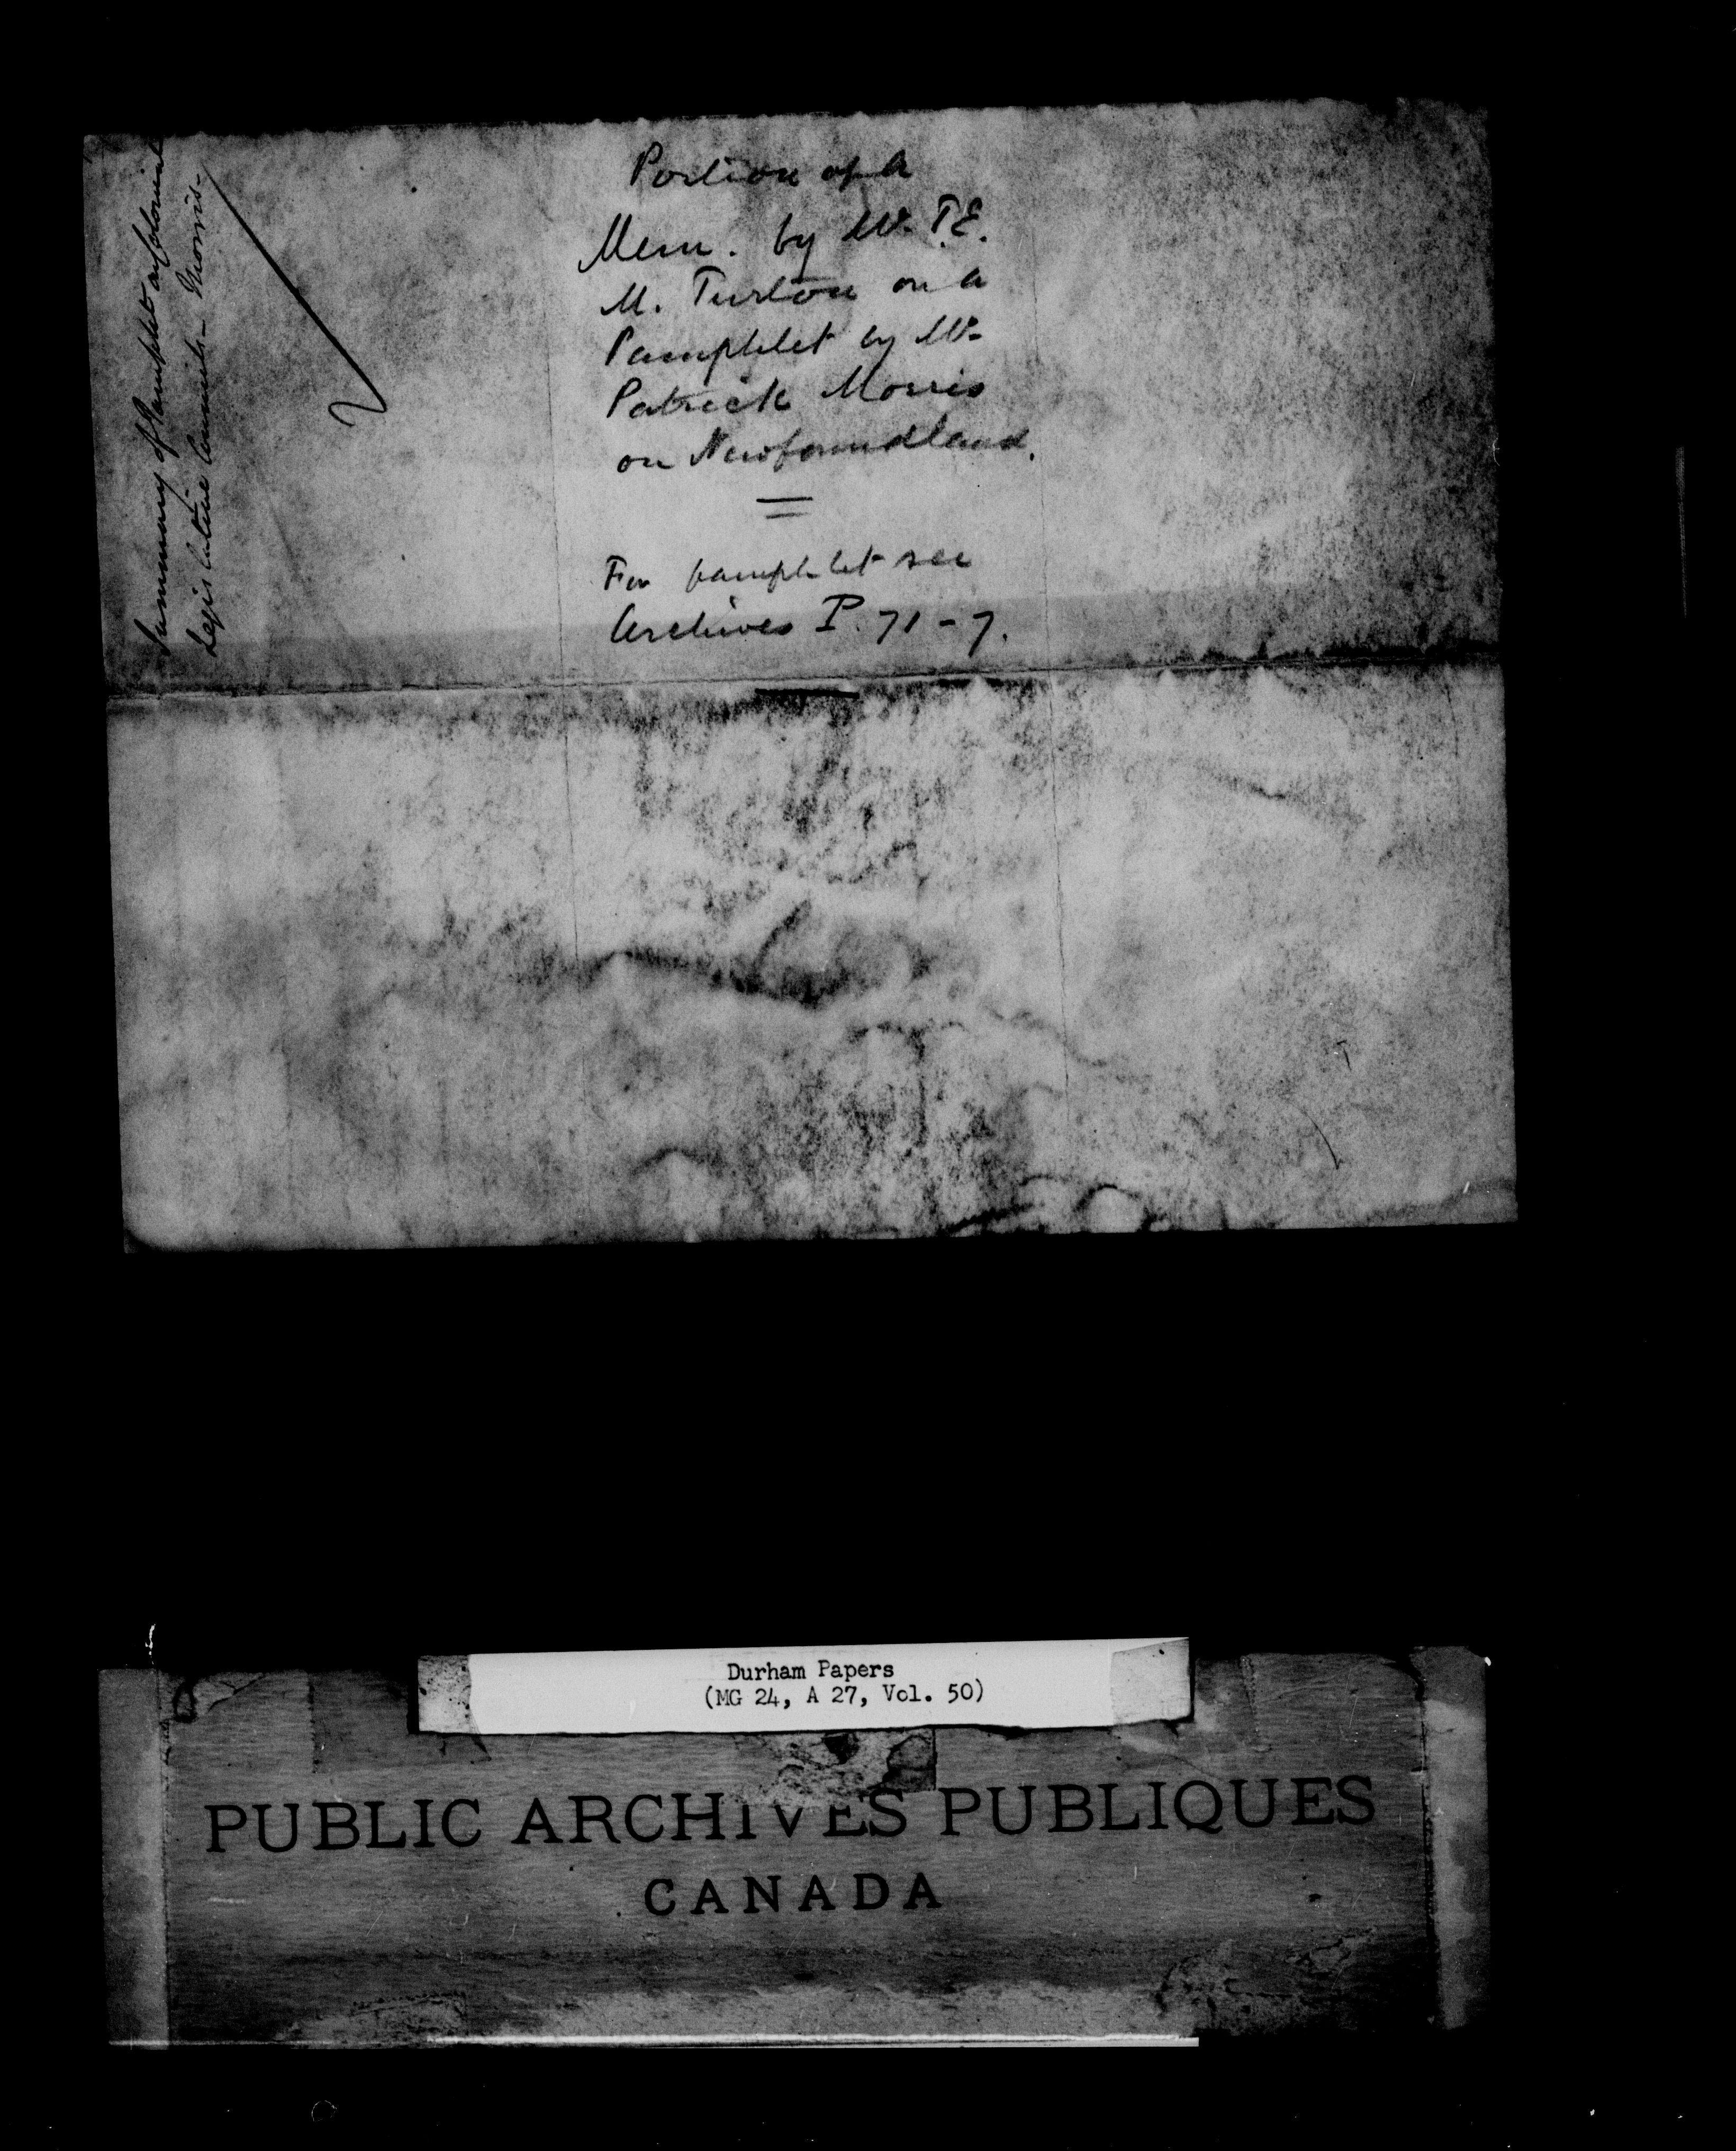 Summary of Pamphlet on Colonial
Legislative Councils - Morris -
Portion of a
Mem. by Mr. T.E.
M. Turton on a
Pamphlet by Mr.
Patrick Morris
on Newfoundland.
For pamphlet see
Archives P. 71-7.
Durham Papers
(MG 24, A 27, Vol. 50)
PUBLIC ARCHIVES PUBLIQUES
CANADA